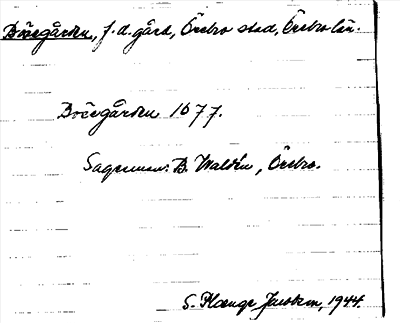 Bössgården, f.d. gård, Örebro stad, Örebro län.
Bössgården 1677.
Sagesman: B. Waldén, Örebro.
S. Plænge Jacobson, 1944.